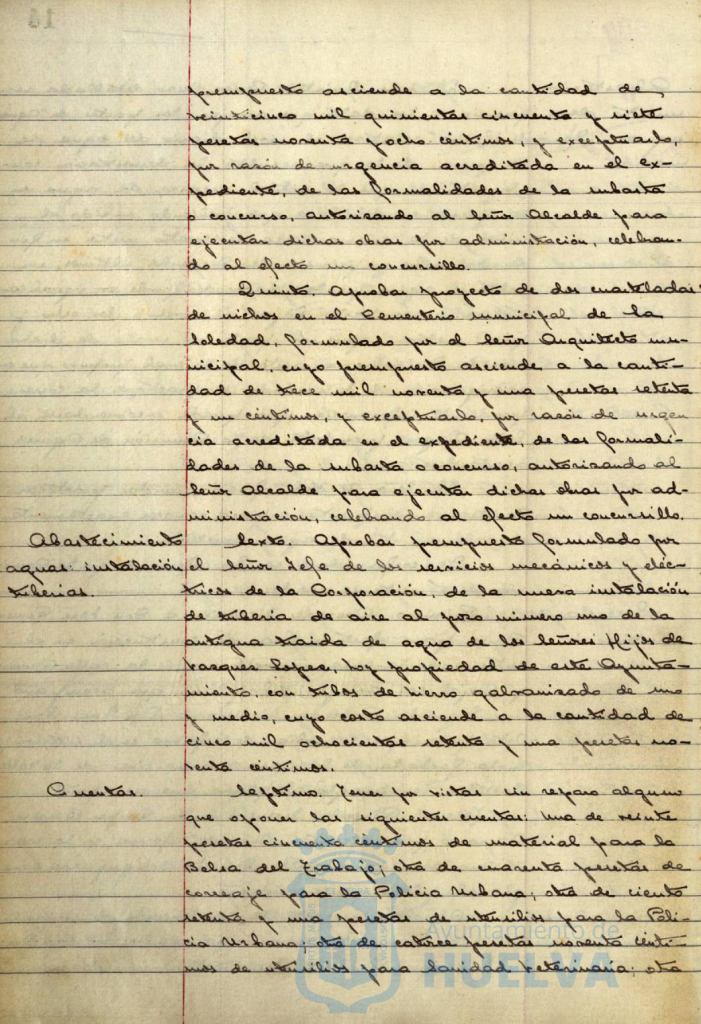 presupuesto asciende a la cantidad de
veinticinco mil quinientas cincuenta y siete
pesetas noventa y ocho céntimos, y exceptuarlo,
por razón de urgencia acreditada en el ex-
pediente, de las formalidades de la subasta
o concurso, autorizando al Señor Alcalde para
ejecutar dichas obras por administración, celebran-
do al efecto un concursillo.
Quinto. Aprobar proyecto de dos cuarteladas
de nichos en el Cementerio municipal de la
Soledad, formulado por el Señor Arquitecto mu-
nicipal, cuyo presupuesto asciende a la canti-
dad de trece mil noventa y una pesetas setenta
y un céntimos, y exceptuarlo, por razón de urgen
cia acreditada en el expediente, de las formali-
dades de la subasta o concurso, autorizando al
Señor Alcalde para ejecutar dichas obras por ad-
ministración, celebrando al efecto un concursillo.
Abastecimiento
aguas: instalación
tuberías.
Sexto. Aprobar presupuesto formulado por
el Señor Jefe de los servicios mecánicos y eléc-
tricos de la Corporación, de la nueva instalación
de tubería de aire al pozo número uno de la
antigua traida de agua de los Señores Hijos de
Vazquez Lopez, hoy propiedad de este Ayunta-
miento, con tubos de hierro galvanizado de uno
y medio, cuyo costo asciende a la cantidad de
cinco mil ochocientas setenta y una pesetas no-
venta céntimos.
Cuentas.
Septimo. Tener por vistas sin reparo alguno
que oponer las siguientes cuentas: una de veinte
pesetas cincuenta céntimos de material para la
Bolsa del Trabajo; otra de cuarenta pesetas de
correaje para la Policia Urbana; otra de ciento
setenta y una pesetas de utensilios para la Poli-
cia Urbana; otra de catorce pesetas noventa cénti-
mos de utensilios para Sanidad Veterinaria; otra
Ayuntamiento de
HUELVA